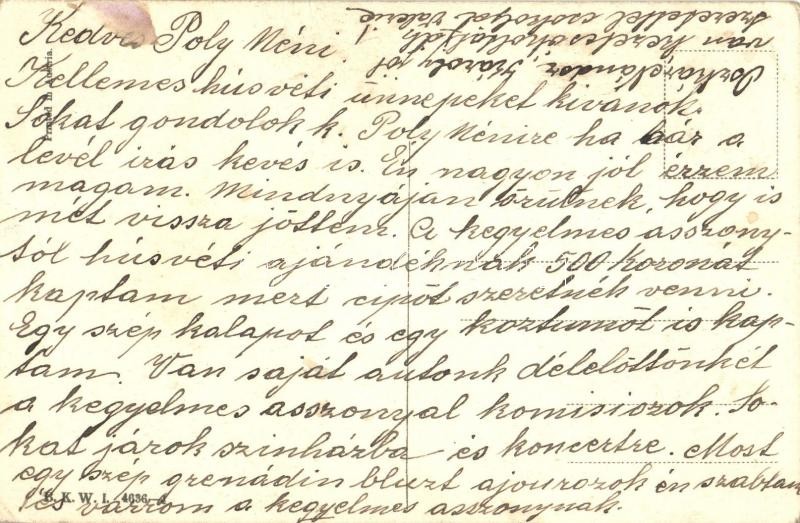 Kedves Poly Néni!
Kellemes húsvéti ünnepeket kivánok.
Sokat gondolok k. Poly Nénire ha bár a
levél irás kevés is. Én nagyon jól érzem
magam. Mindnyáján örülnek, hogy is
mét vissza jöttem. A kegyelmes asszony-
tól húsvéti ajándéknak 500 Koronát
kaptam mert cipőt szeretnék venni.
Egy szép kalapot és egy koztumöt is kap-
tam. Van saját autonk délelöttönkét
a kegyelmes asszonyal komisiozok. So-
kat járok szinházba és koncertre. Most
egy szép grenádin bluzt ajourozok én szabtam
és varrom a kegyelmes asszonynak.
Nándor, Károly jól
van kezeit csókoltatják
szeretettel csókolja Valerie
Printed in Austria.
B. K. W. I. 4636-4